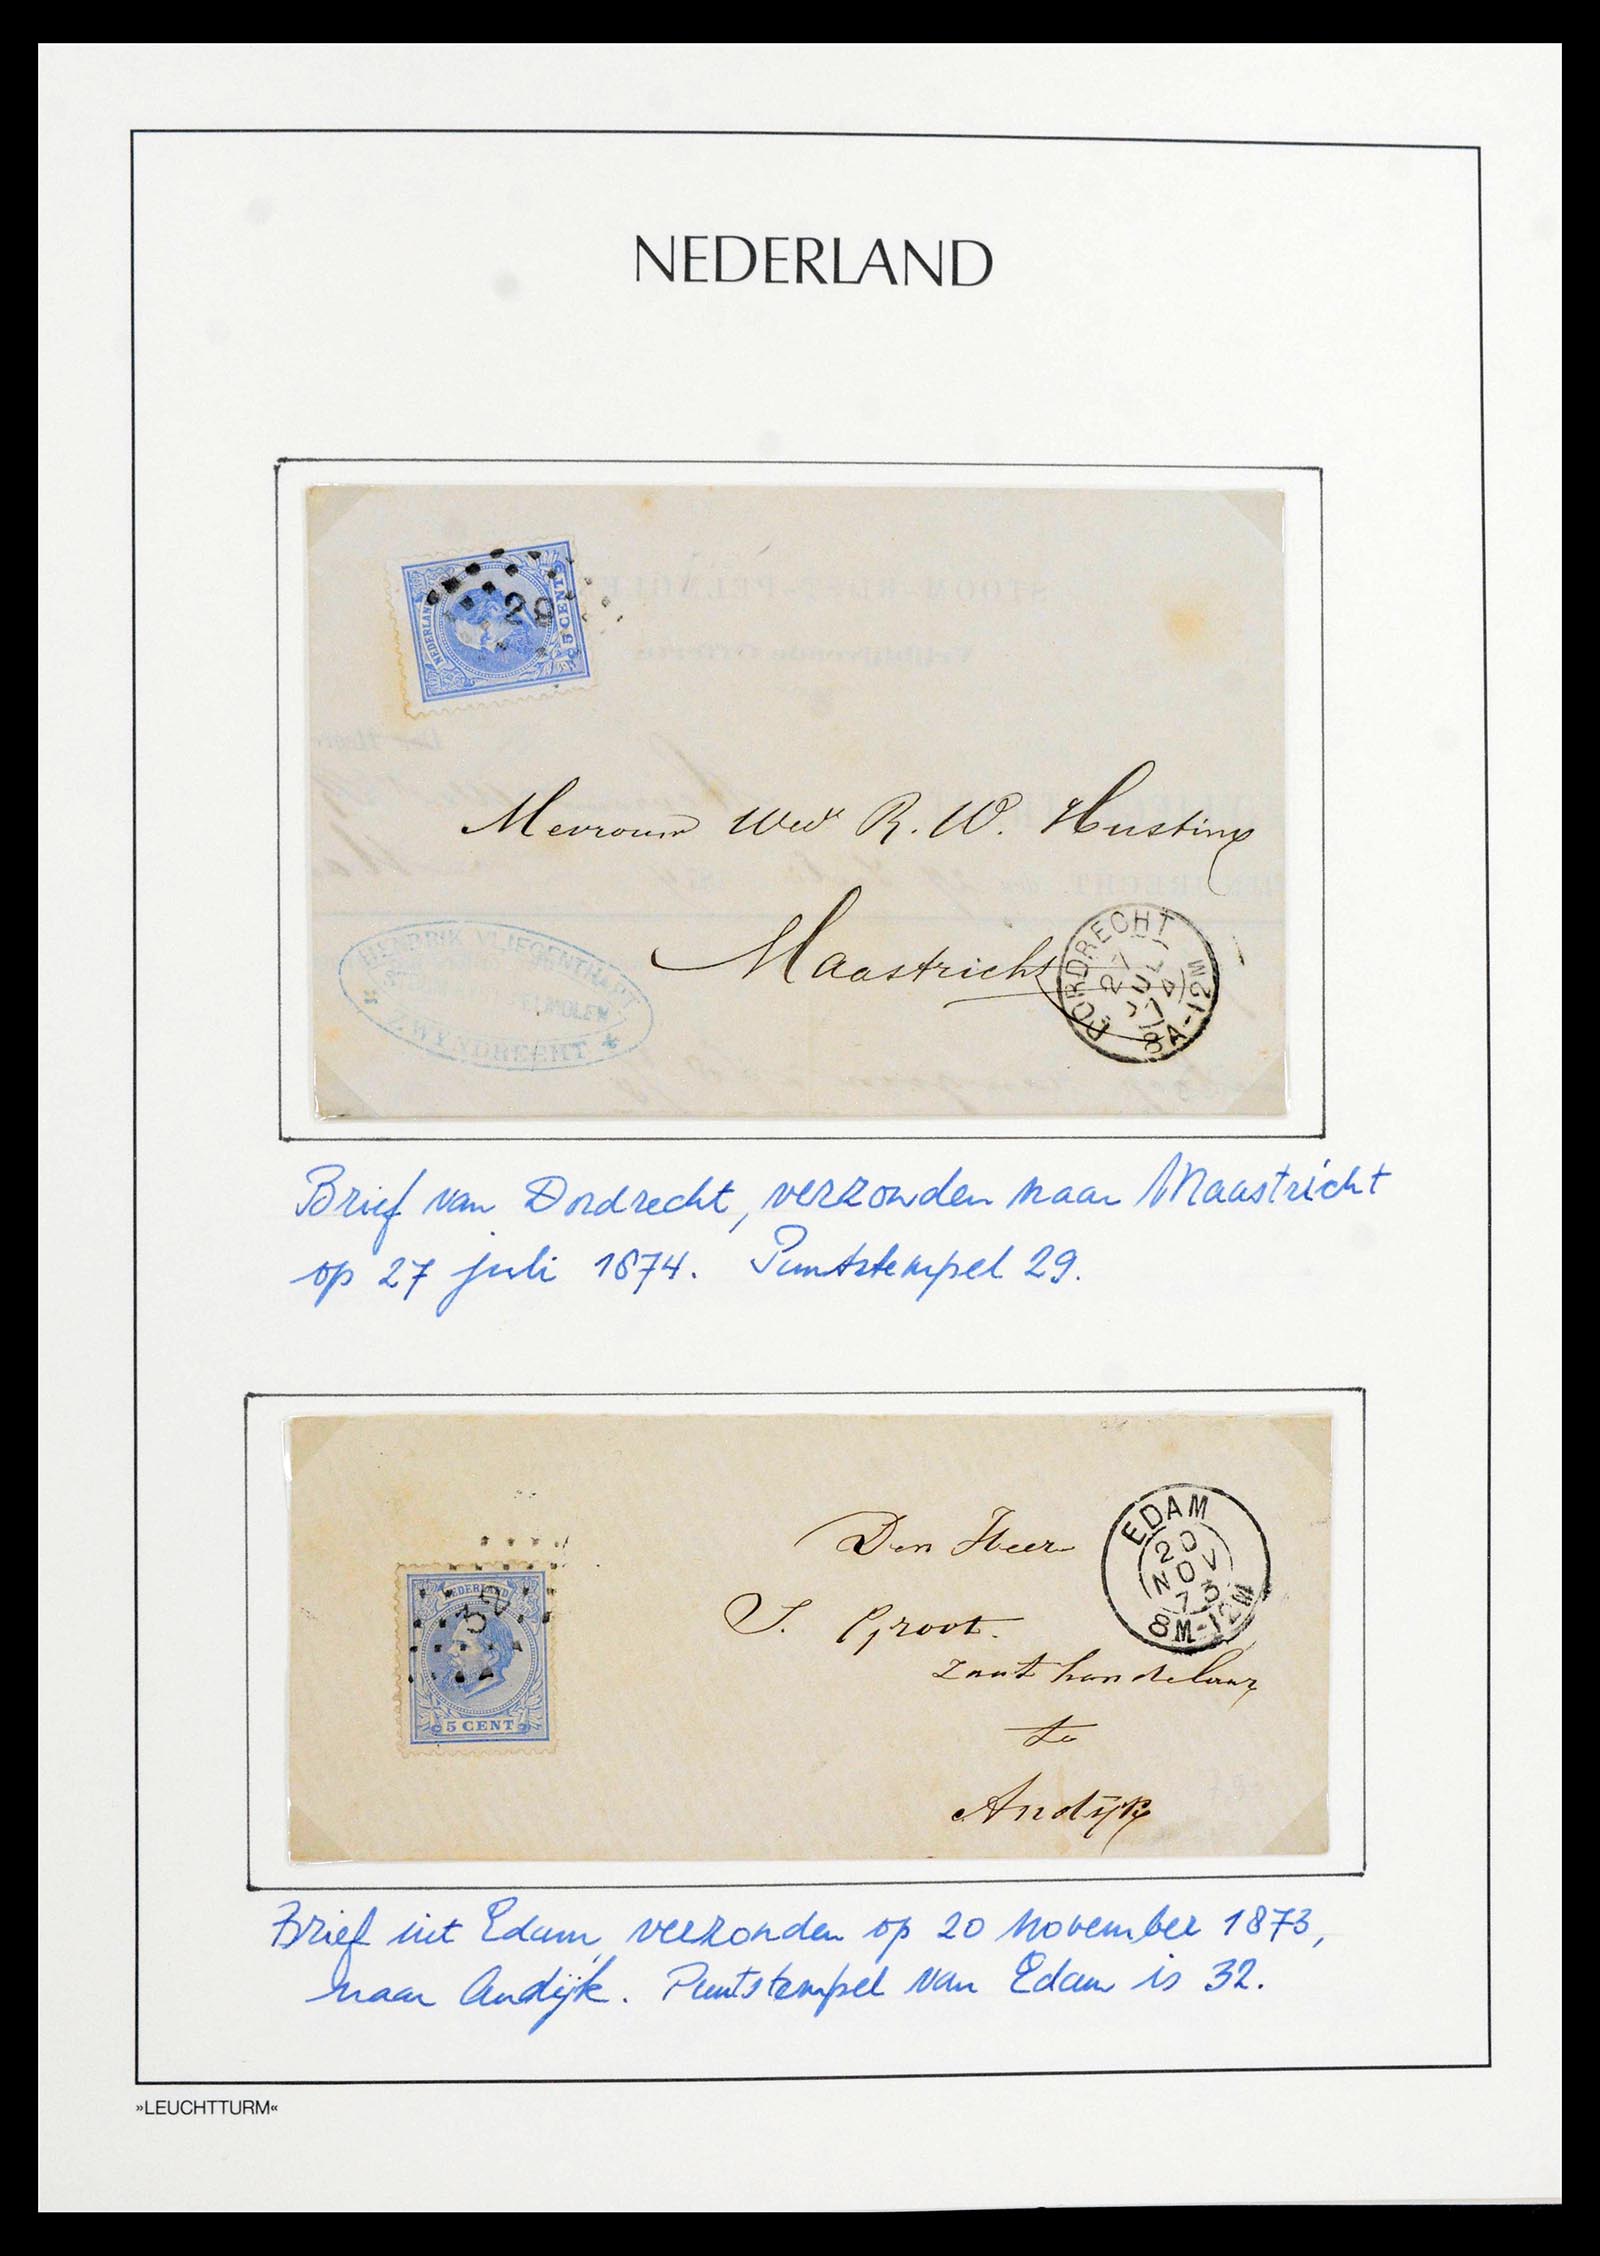 NEDERLAND
NEDERLAND
5 CENT
29
Mevrouw Wed R. W. Hustinx
Maastricht
DORDRECHT
27
JUL
74
8A-12M
HENDRIK VLIEGENTHART
ZWYNDRECHT
Brief van Dordrecht, verzonden naar Maastricht
op 27 juli 1874. Puntstempel 29.
NEDERLAND
32
5 CENT
Den Heer
S. Groot.
Zaathandelaar
te
Andijk
EDAM
20
NOV
73
8M-12M
Brief uit Edam, verzonden op 20 november 1873,
naar Andijk. Puntstempel van Edam is 32.
»LEUCHTTURM«